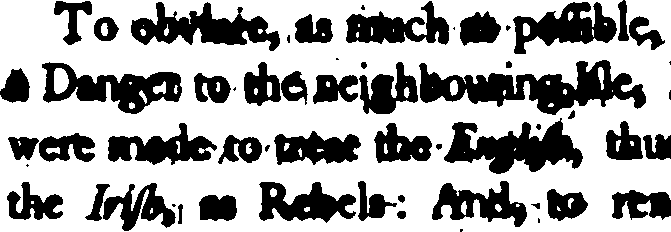 To obviate, as much as poſſible,
a Danger to the neighbouring Iſle,
were made to treat the Engliſh, thu
the Iriſh, as Rebels: And, to ren